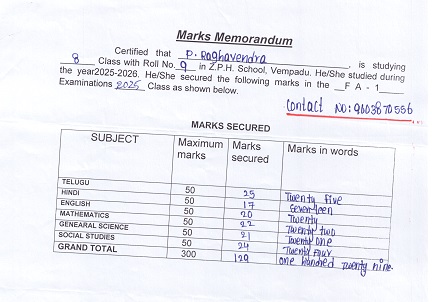 Marks Memorandum
Certified that P. Raghavendra, is studying
8 Class with Roll No. 9 in Z.P.H. School, Vempadu. He/She studied during
the year2025-2026. He/She secured the following marks in the __F A - 1____
Examinations 2025 Class as shown below.
Contact No: 9003870556
MARKS SECURED
SUBJECT Maximum marks Marks secured Marks in words
TELUGU 50 25 Twenty five
HINDI 50 17 Seventeen
ENGLISH 50 20 Twenty
MATHEMATICS 50 22 Twenty two
GENEARAL SCIENCE 50 21 Twenty one
SOCIAL STUDIES 50 24 Twenty four
GRAND TOTAL 300 129 one hundred twenty nine